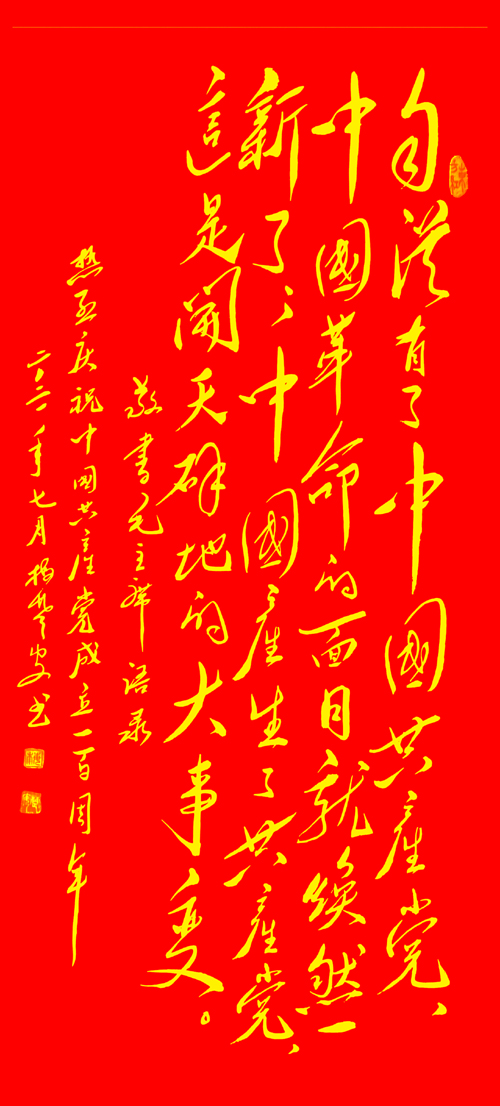 自從有了中國共產党、
中國革命的面目就煥然一
新了；中國產生了共產党、
這是開天研地的大事变。
敬書毛主席语录
热烈庆祝中國共產党成立一百周年
二〇二一年七月杨楚安书